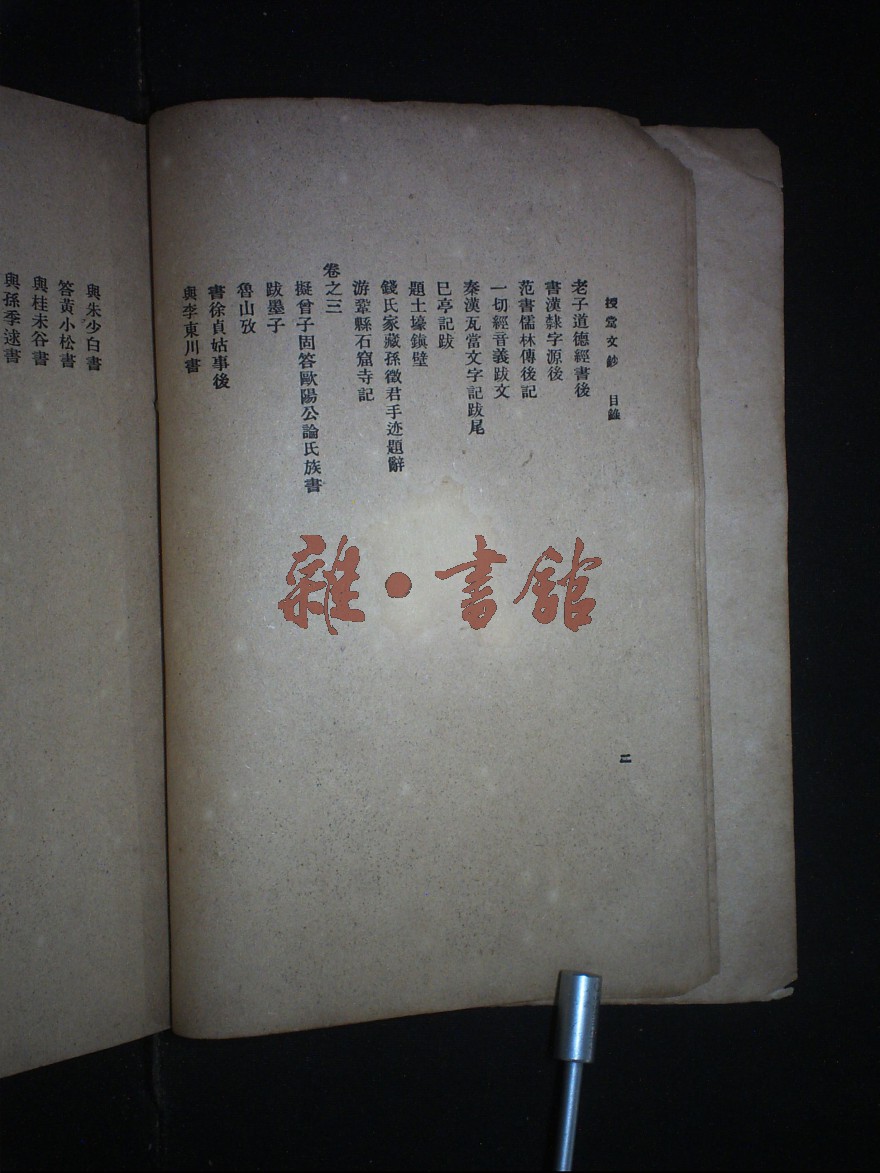 授堂文鈔 目錄
老子道德經書後
書漢隸字源後
范書儒林傳後記
一切經音義跋文
秦漢瓦當文字記跋尾
巳亭記跋
題土壕鎮壁
錢氏家藏孫徵君手迹題辭
游鞏縣石窟寺記
卷之三
擬曾子固答歐陽公論氏族書
跋墨子
魯山攷
書徐貞姑事後
與李東川書
二
與朱少白書
答黃小松書
與桂未谷書
與孫季逑書
雜·書館